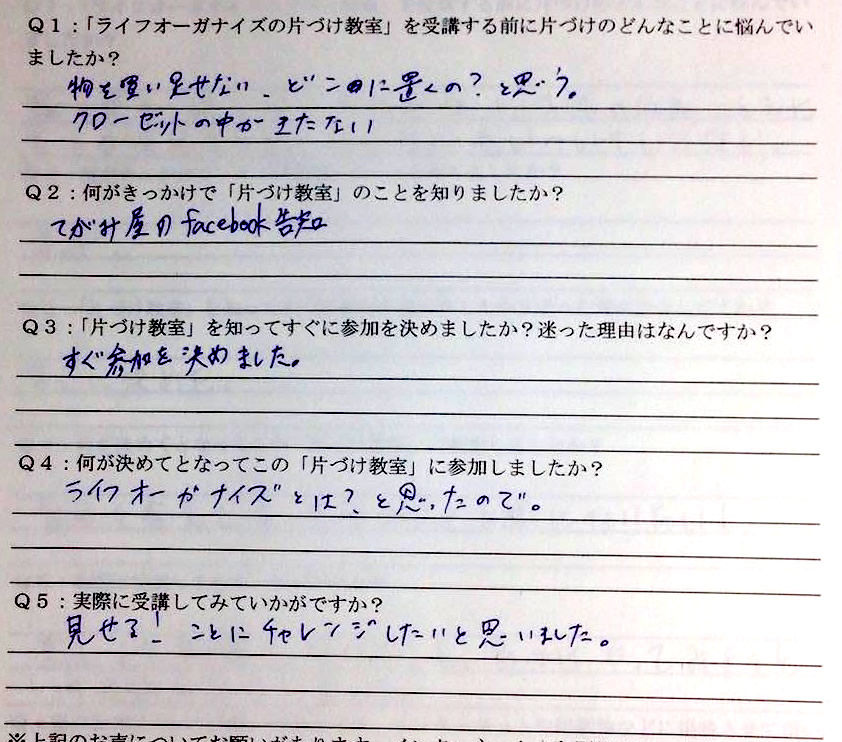 Q1:「ライフオーガナイズの片づけ教室」を受講する前に片づけのどんなことに悩んでい
ましたか?
物を買い見せない、どこに置くの?と思う。
クローゼットの中がきたない
Q2:何がきっかけで「片づけ教室」のことを知りましたか?
てがみ屋のfacebook告知
Q3:「片づけ教室」を知ってすぐに参加を決めましたか?迷った理由はなんですか?
すぐ参加を決めました。
Q4:何が決めてとなってこの「片づけ教室」に参加しましたか?
ライフオーガナイズとは?と思ったので。
Q5:実際に受講してみていかがですか?
見せる!ことにチャレンジしたいと思いました。
※上記のお声についてお願いがあります